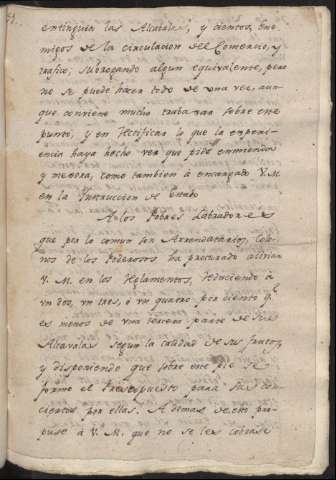 extinguir las Alcavalas, y cientos, Ene
migos de la circulacion del Comercio, y
trafico, subrogando algun equivalente, pero
no se puede hacer todo de una vez, aun
que conviene mucho trabaxar sobre este
punto, y en rectificar lo que la experi
encia haya hecho ver que pide enmienda
y mexora, como tambien à encargado V.M.
en la Instruccion de Estado
A los Pobres Labradores
que por lo comun son Arrendatarios, Colo
nos de los Poderosos ha procurado aliviar
V. M. en los Reglamentos, reduciendo à
un dos, un tres, ó un quatro por ciento qe
es menos de una tercera parte de sus
Alcavalas segun la calidad de sus frutos,
y disponiendo que sobre este pie se
forme el Presupuesto para su
cientos por ellas. A demas de esto pro
puse à V. M. que no se les cobrase